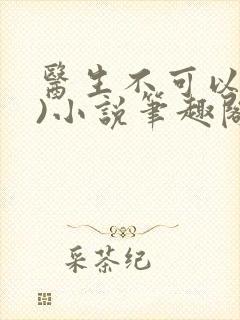 醫生不可以
)小說筆趣閣
采茶纪